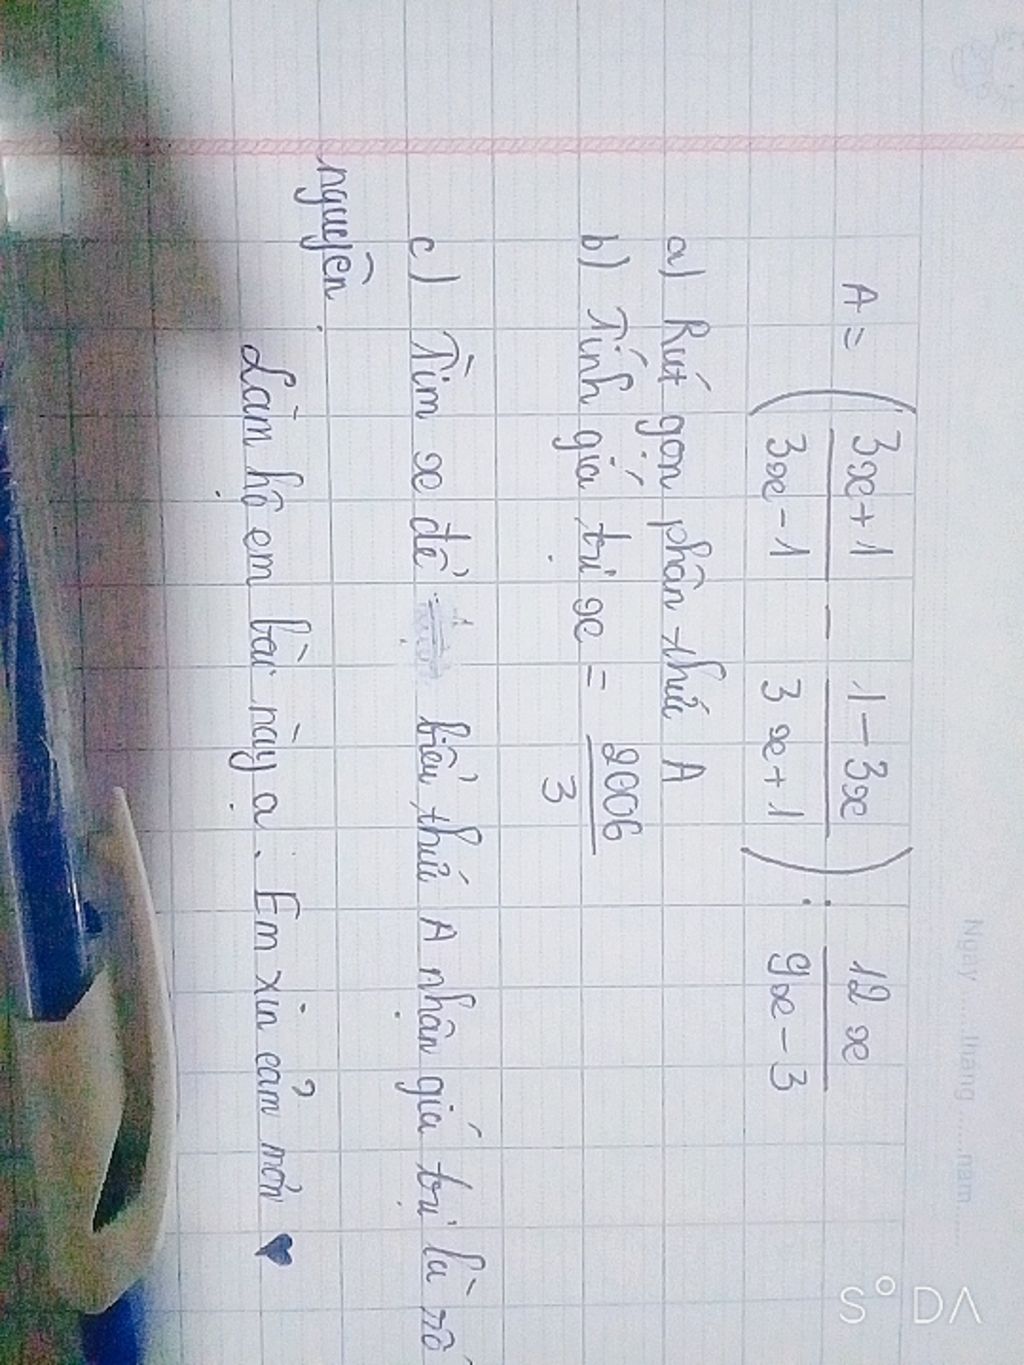 Ngày ...... tháng ...... năm ......
A = ( (3x+1)/(3x-1) - (1-3x)/(3x+1) ) : 12x/(9x-3)
a) Rút gọn phân thức A
b) Tính giá trị x = 2006/3
c) Tìm x để biểu thức A nhận giá trị là số
nguyên.
Làm hộ em bài này ạ. Em xin cảm mơn ♥
SODA